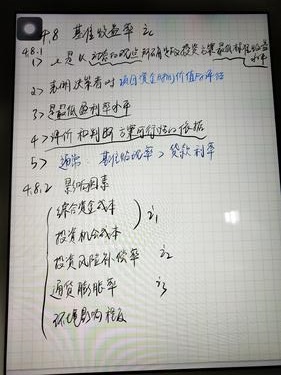 4.8 基准收益率 ic
4.8.1
1> 是以动态的观点所确定的投资方案最低标准收益水平
2> 表明决策者对项目资金时间价值的评估
3> 是最低盈利率水平
4> 评价和判断方案可行性的依据
5> 通常 基准收益率 > 贷款利率
4.8.2 影响因素
综合资金成本
投资机会成本 i1
投资风险补偿率 i2
通货膨胀率 i3
环境影响程度